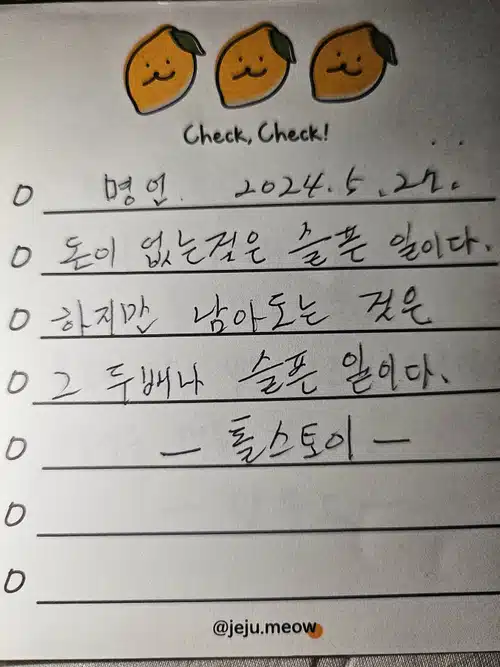 Check, Check!
명언. 2024.5.27.
돈이 없는것은 슬픈 일이다.
하지만 남아도는 것은
그 두배나 슬픈 일이다.
— 톨스토이 —
@jeju.meow